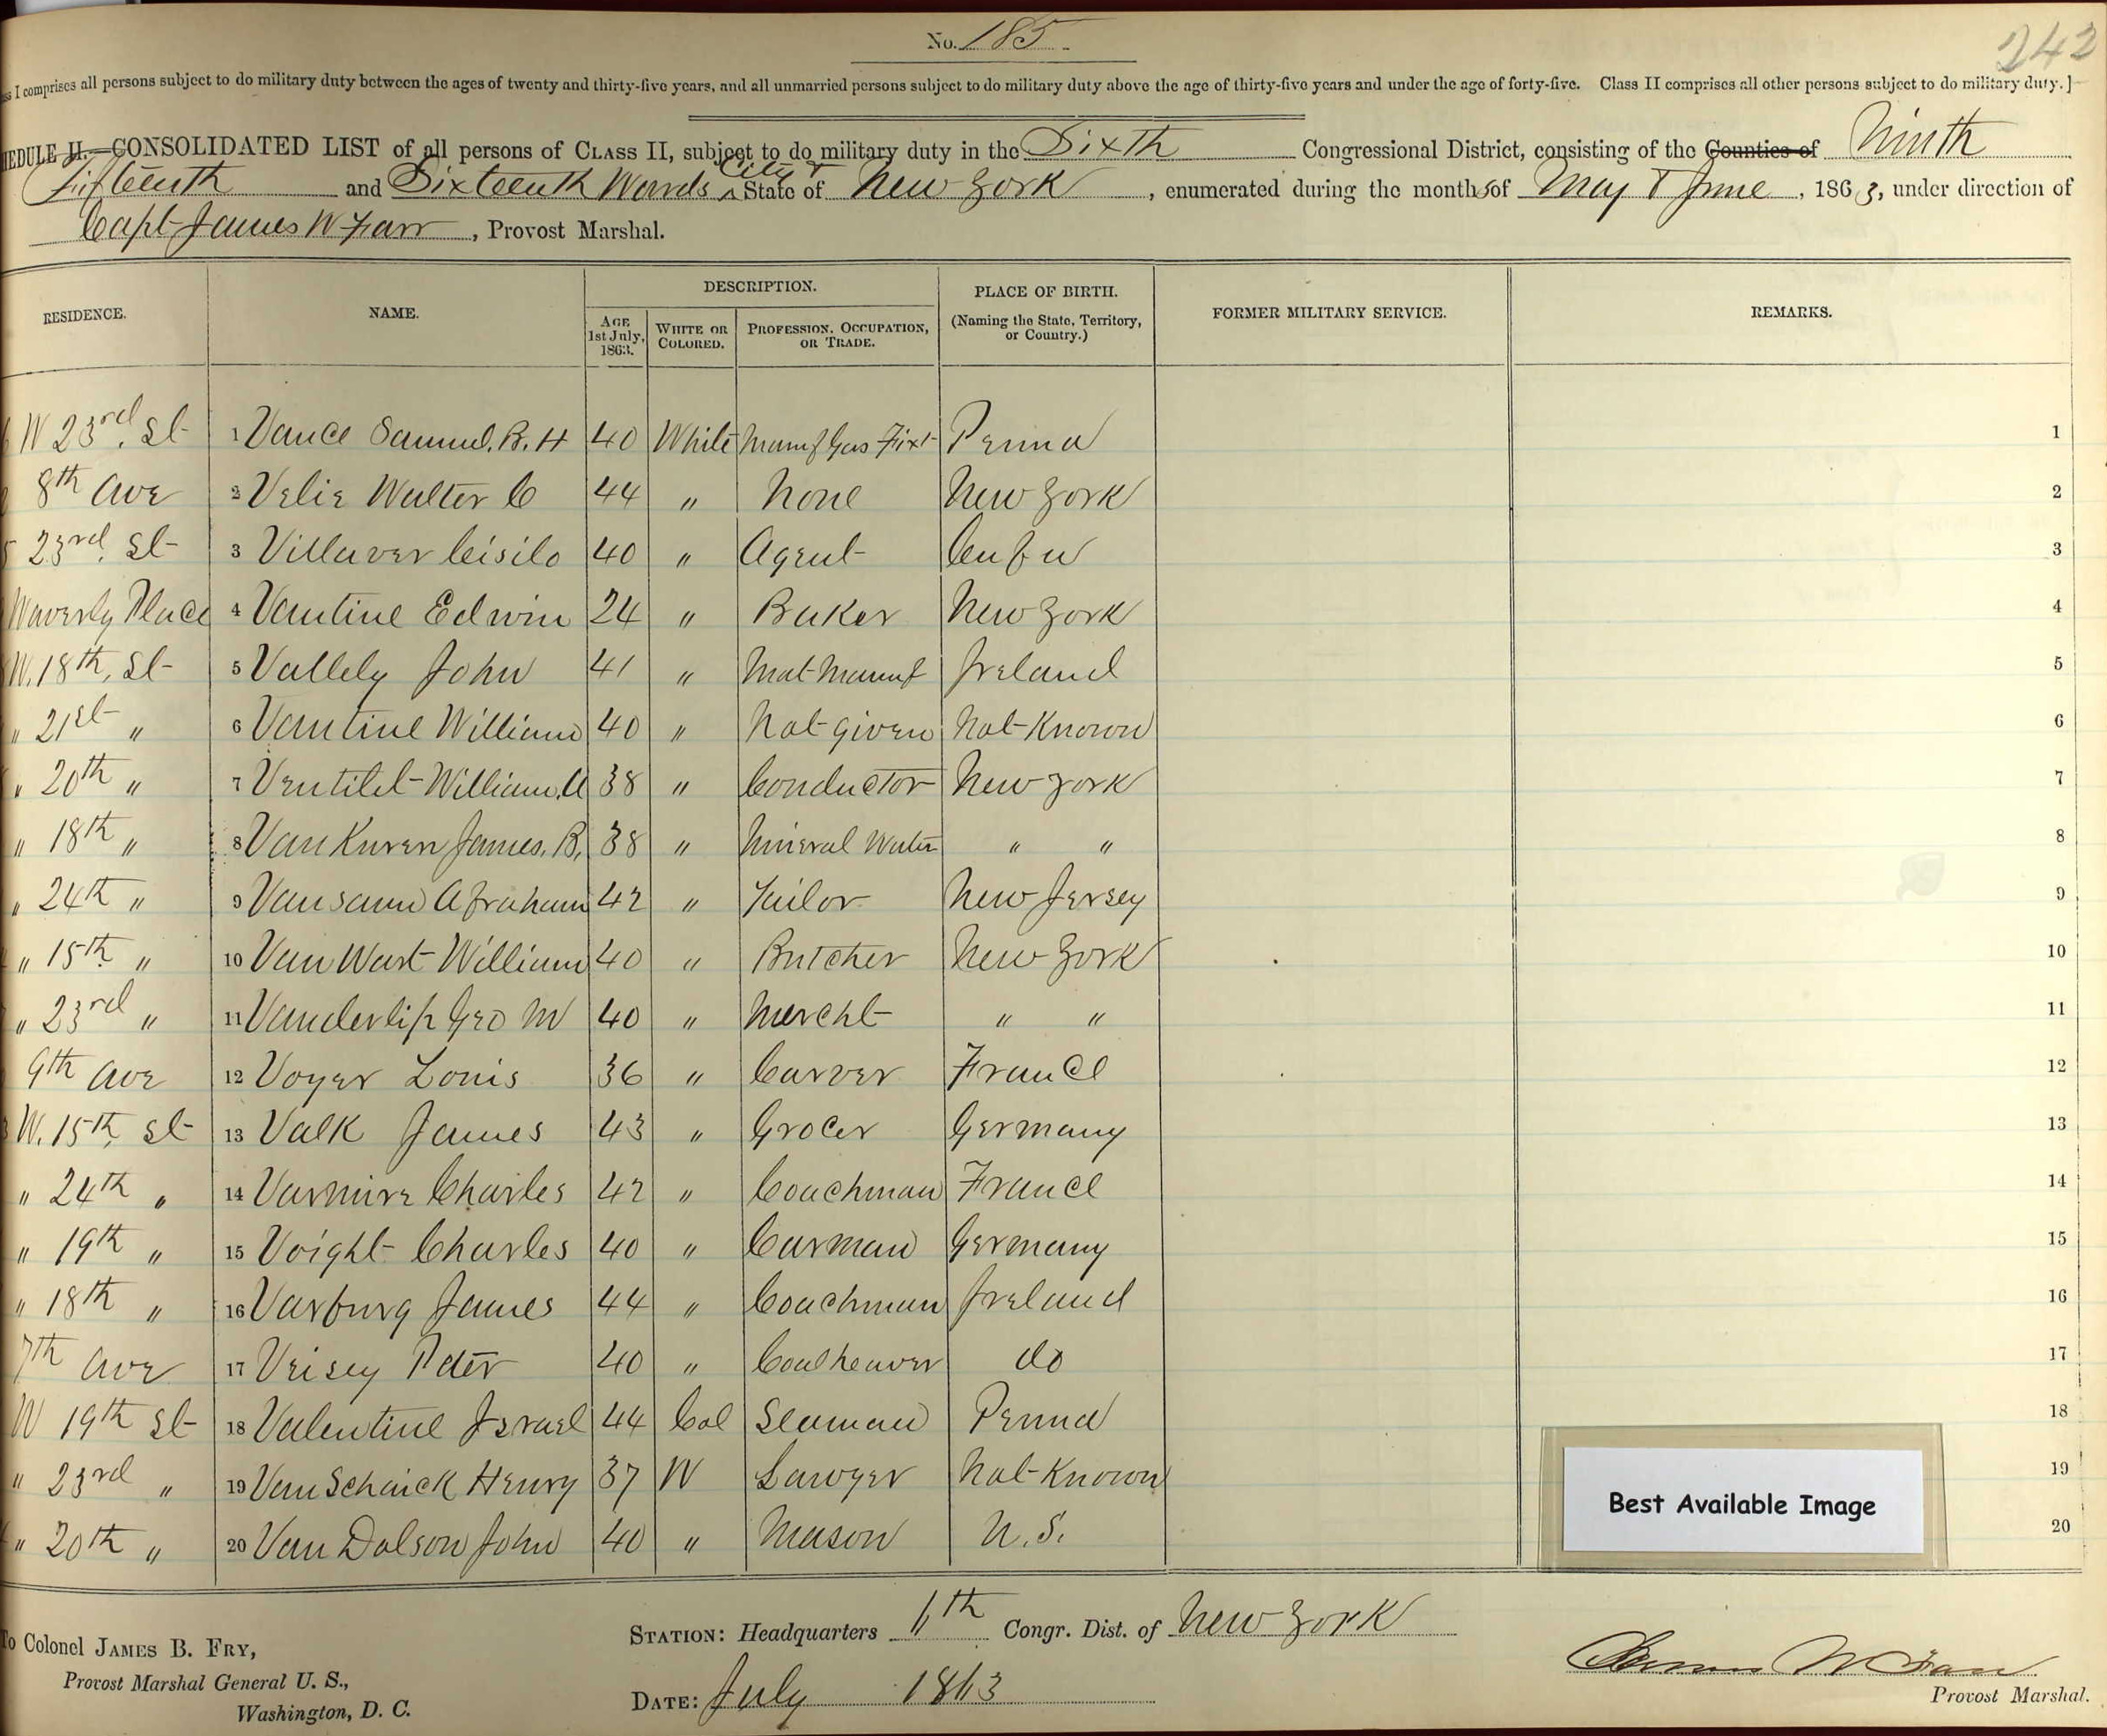 No. 185
242
I comprises all persons subject to do military duty between the ages of twenty and thirty-five years, and all unmarried persons subject to do military duty above the age of thirty-five years and under the age of forty-five. Class II comprises all other persons subject to do military duty.]
EDULE II.—CONSOLIDATED LIST of all persons of CLASS II, subject to do military duty in the Sixth Congressional District, consisting of the Counties of Ninth
Fifteenth and Sixteenth Wards City & State of New York, enumerated during the months of May & June, 1863, under direction of
Capt James W Farr, Provost Marshal.
RESIDENCE. NAME. DESCRIPTION. PLACE OF BIRTH. (Naming the State, Territory, or Country.) FORMER MILITARY SERVICE. REMARKS.
AGE 1st July, 1863. WHITE OR COLORED. PROFESSION, OCCUPATION, OR TRADE.
W 23rd. St 1 Vance Samuel. B. H 40 White Manuf Gas Fixt Penna 1
8th Ave 2 Velie Walter C 44 " None New York 2
23rd. St 3 Villaver Cisilo 40 " Agent Cuba 3
Waverly Place 4 Vantine Edwin 24 " Baker New York 4
W. 18th, St 5 Vallely John 41 " Mat Manuf Ireland 5
" 21st " 6 Vantine William 40 " Not given Not Known 6
" 20th " 7 Ventilet William. A 38 " Conductor New York 7
" 18th " 8 Van Kuren James. B. 38 " Mineral Water " " 8
" 24th " 9 Vansaun Abraham 42 " Tailor New Jersey 9
" 15th " 10 Van Wart William 40 " Butcher New York 10
" 23rd " 11 Vanderlip Geo M 40 " Mercht " " 11
9th Ave 12 Voyer Louis 36 " Carver France 12
W. 15th, St 13 Valk James 43 " Grocer Germany 13
" 24th " 14 Varmire Charles 42 " Coachman France 14
" 19th " 15 Voight Charles 40 " Carman Germany 15
" 18th " 16 Varburg James 44 " Coachman Ireland 16
7th Ave 17 Veisey Peter 40 " Coalheaver do 17
W 19th St 18 Valentine Israel 44 Col Seaman Penna 18
" 23rd " 19 Van Schaick Henry 37 W Lawyer Not Known 19
" 20th " 20 Van Dolson John 40 " Mason U. S. 20
Best Available Image
To Colonel JAMES B. FRY,
Provost Marshal General U. S.,
Washington, D. C.
STATION: Headquarters 6th Congr. Dist. of New York
DATE: July 1863
James W Farr
Provost Marshal.